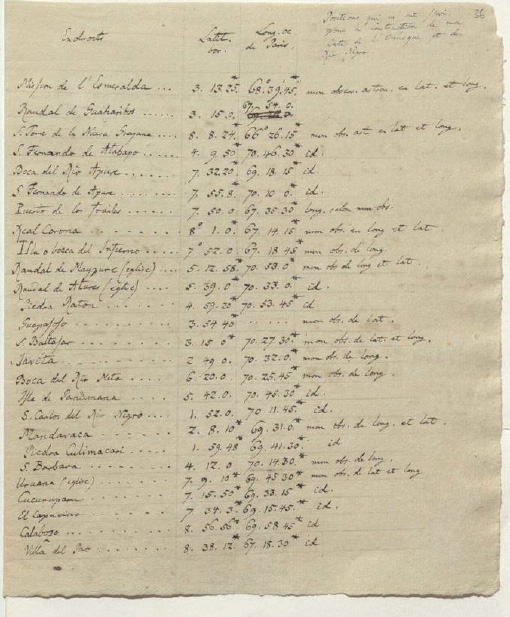 36
Positions qui m'ont servi
pour la construction de ma
Carte de l'Orinoque et du
Rio Negro
Endroits Latit. bor. Long. oc. de Paris
Mission de l'Esmeralda ... 3. 13.25.* 68°.39.45.* mon observation en lat. et long.
Raudal de Guaharibos 3. 15.0. 67. 54. 0.
S. Tome de la Nueva Guayana ... 8. 8. 24.* 66° 26.15* mon obs ast. en lat et long.
S. Fernando de Atabapo ..... 4. 9. 50* 70. 46.30* id.
Boca del Rio Apure ..... 7. 32.20. 69. 18. 15* id.
S. Fernando de Apure ..... 7. 55.8. 70. 10. 0* id.
Puerto de los frailes ...... 7. 50. 0. 67. 35. 30* long. selon mon obs.
Real Corona ...... 8° 1. 0.* 67. 14. 15* mon obs. en long et lat.
Isla o bocca del Infierno .... 7° 52. 0 67. 18 45* mon obs. de long.
Raudal de Maypure (eglise) ... 5. 12. 58.* 70. 53. 0* mon obs de long et lat.
Raudal de Atures (eglise) .... 5. 39. 0* 70. 33. 0. id.
Piedra Raton ..... 4. 59.20* 70. 53. 45* id
Guapasoso ..... 3. 54 40* ..... mon obs. de lat.
S. Baltasar ..... 3. 15 0* 70. 27.30* mon obs. de lat. et long.
Javita ..... 2 49. 0. 70. 32. 0.* mon obs. de long.
Boca del Rio Meta .... 6. 20. 0 70. 25. 45* mon obs. de long.
Isle de Panumana .... 5. 42. 0. 70. 45. 30* id.
S. Carlos del Rio Negro ... 1. 52. 0. 70 11. 45.* id.
Mandavaca ..... 2. 8. 10* 69. 31. 0* mon obs. de long. et lat.
Piedra Culimacari .... 1. 59. 48* 69. 41. 30.* id
S. Barbara ..... 4. 12. 0 70. 14. 30.* mon obs. de long.
Uruana (eglise) ..... 7. 9. 10* 69. 45 30* mon obs. de lat et long
Cucurupam ..... 7. 15. 50* 69. 33. 15* id.
El Capuchino ..... 7 34. 3.* 69. 15. 45.* id.
Calabozo ..... 8. 56.56* 69. 58 45* id
Villa del Pao ..... 8. 38. 12.* 67. 18. 30* id